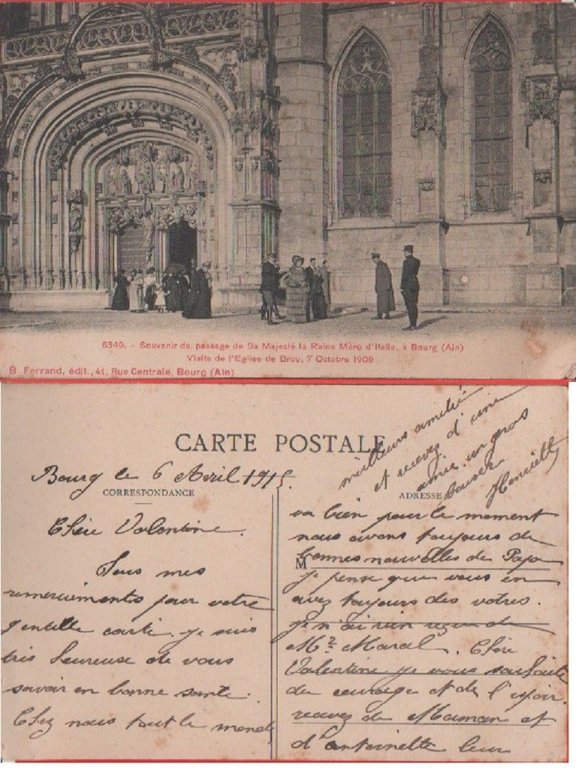 6349. - Souvenir du passage de Sa Majesté la Reine Mère d'Italie, à Bourg (Ain)
Visite de l'Eglise de Brou, 7 Octobre 1909
B. Ferrand, édit., 41, Rue Centrale, Bourg (Ain)
CARTE POSTALE
Bourg le 6 Avril 1915.
CORRESPONDANCE
Chère Valentine.
Tous mes
remerciements pour votre
gentille carte. je suis
très heureuse de vous
savoir en bonne santé.
Chez nous tout le monde
ADRESSE
M
va bien pour le moment
nous avons toujours de
bonnes nouvelles de Papa
je pense que vous en
avez toujours des votres.
je n'ai rien reçu de
Maral. Chère
Valentine je vous souhaite
du courage et de l'espoir
recevez de Maman et
d'Antoinette leurs
meilleurs amitiés
et recevez d'une
amie un gros
baiser
Henriette